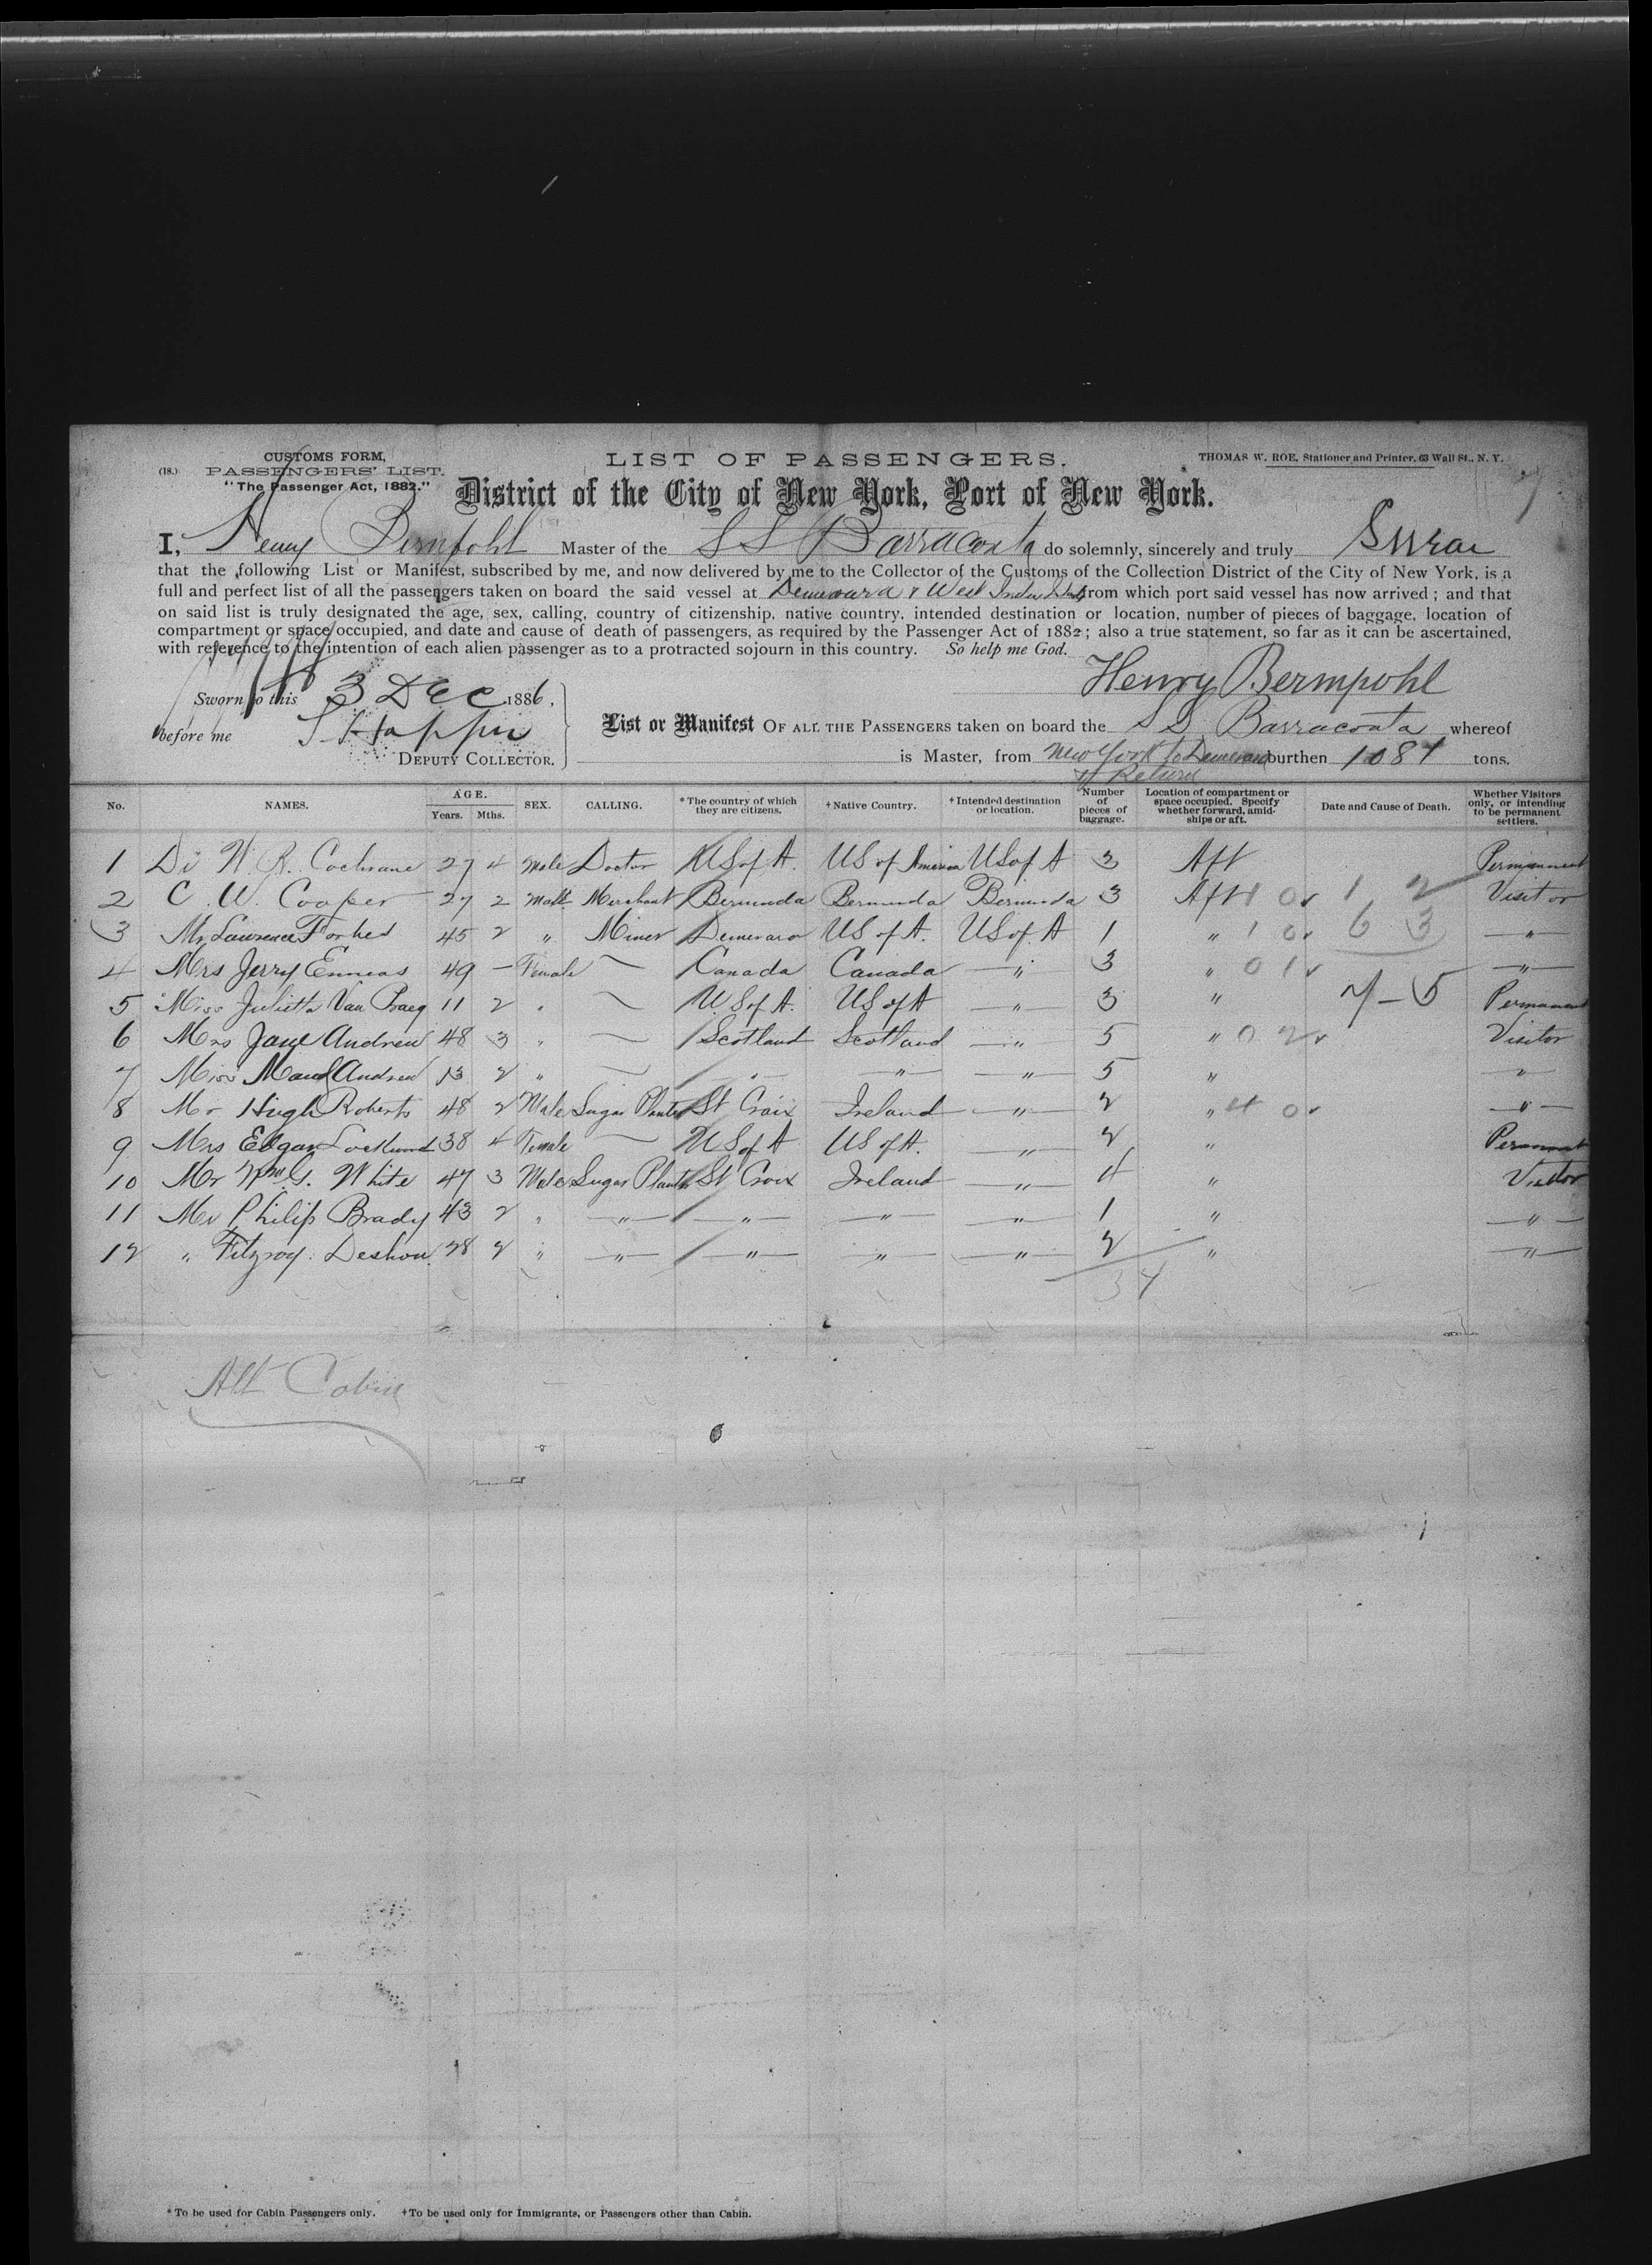 CUSTOMS FORM,
(18.) PASSENGERS' LIST.
"The Passenger Act, 1882."
LIST OF PASSENGERS.
THOMAS W. ROE, Stationer and Printer, 63 Wall St., N. Y.
District of the City of New York, Port of New York.
I, Henry Bermpohl Master of the S S Barracouta do solemnly, sincerely and truly Swear
that the following List or Manifest, subscribed by me, and now delivered by me to the Collector of the Customs of the Collection District of the City of New York, is a
full and perfect list of all the passengers taken on board the said vessel at Demerara & West from which port said vessel has now arrived; and that
on said list is truly designated the age, sex, calling, country of citizenship, native country, intended destination or location, number of pieces of baggage, location of
compartment or space occupied, and date and cause of death of passengers, as required by the Passenger Act of 1882; also a true statement, so far as it can be ascertained,
with reference to the intention of each alien passenger as to a protracted sojourn in this country. So help me God.
Henry Bermpohl
Sworn to this 3 Dec 1886,
before me
DEPUTY COLLECTOR.
List or Manifest OF ALL THE PASSENGERS taken on board the S S Barracouta whereof
is Master, from New York to Demerara burthen 1084 tons.
& Return
No. NAMES. AGE. Years. Mths. SEX. CALLING. *The country of which they are citizens. †Native Country. †Intended destination or location. Number of pieces of baggage. Location of compartment or space occupied. Specify whether forward, amidships or aft. Date and Cause of Death. Whether Visitors only, or intending to be permanent settlers.
1 Dr W. R. Cochrane 27 4 Male Doctor U S of A. U S of America U S of A 3 Aft Permanent
2 C. W. Cooper 27 2 Male Merchant Bermuda Bermuda Bermuda 3 Aft 1 0 1 2 Visitor
3 Mr Lawrence Forbes 45 2 " Miner Demerara U S of A. U S of A 1 " 1 0 6 3 "
4 Mrs Jerry Enneas 49 — Female — Canada Canada " 3 " 0 1 "
5 Miss Julietta Van Praag 11 2 " — U. S of A. U S of A " 3 " 7 – 5 Permanent
6 Mrs Jane Andrew 48 3 " — Scotland Scotland " 5 " 0 2 Visitor
7 Miss Maud Andrew 13 2 " — " " " 5 " "
8 Mr Hugh Roberts 48 2 Male Sugar Planter St Croix Ireland " 2 " 4 0 "
9 Mrs Edgar 38 4 Female — U S of A U S of A. " 2 " Permanent
10 Mr Wm G. White 47 3 Male Sugar Planter St Croix Ireland " 4 " Visitor
11 Mr Philip Brady 43 2 " " " " " 1 " "
12 " Fitzroy Deshon 28 2 " " " " " 2 " "
34
All Cabin
*To be used for Cabin Passengers only. †To be used only for Immigrants, or Passengers other than Cabin.